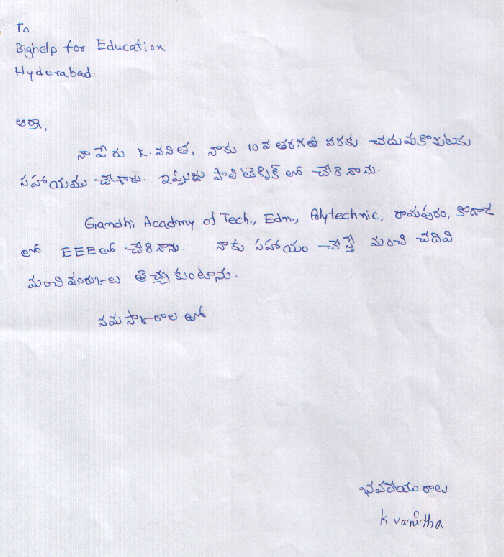 To
Bighelp for Education
Hyderabad.
ఆర్యా,
నా పేరు K. వనిత, నాకు 10వ తరగతి వరకు చదువుకొనుటకు
సహాయము చేశారు. ఇప్పుడు పాలిటెక్నిక్ లో చేరినాను.
Gandhi Academy of Tech., Edn., Polytechnic, రామాపురం, కోదాడ
లో EEEలో చేరినాను. నాకు సహాయం చేస్తే మంచి చదివి
మంచి మార్కులు తెచ్చుకుంటాను.
నమస్కారాలతో
K Vanitha